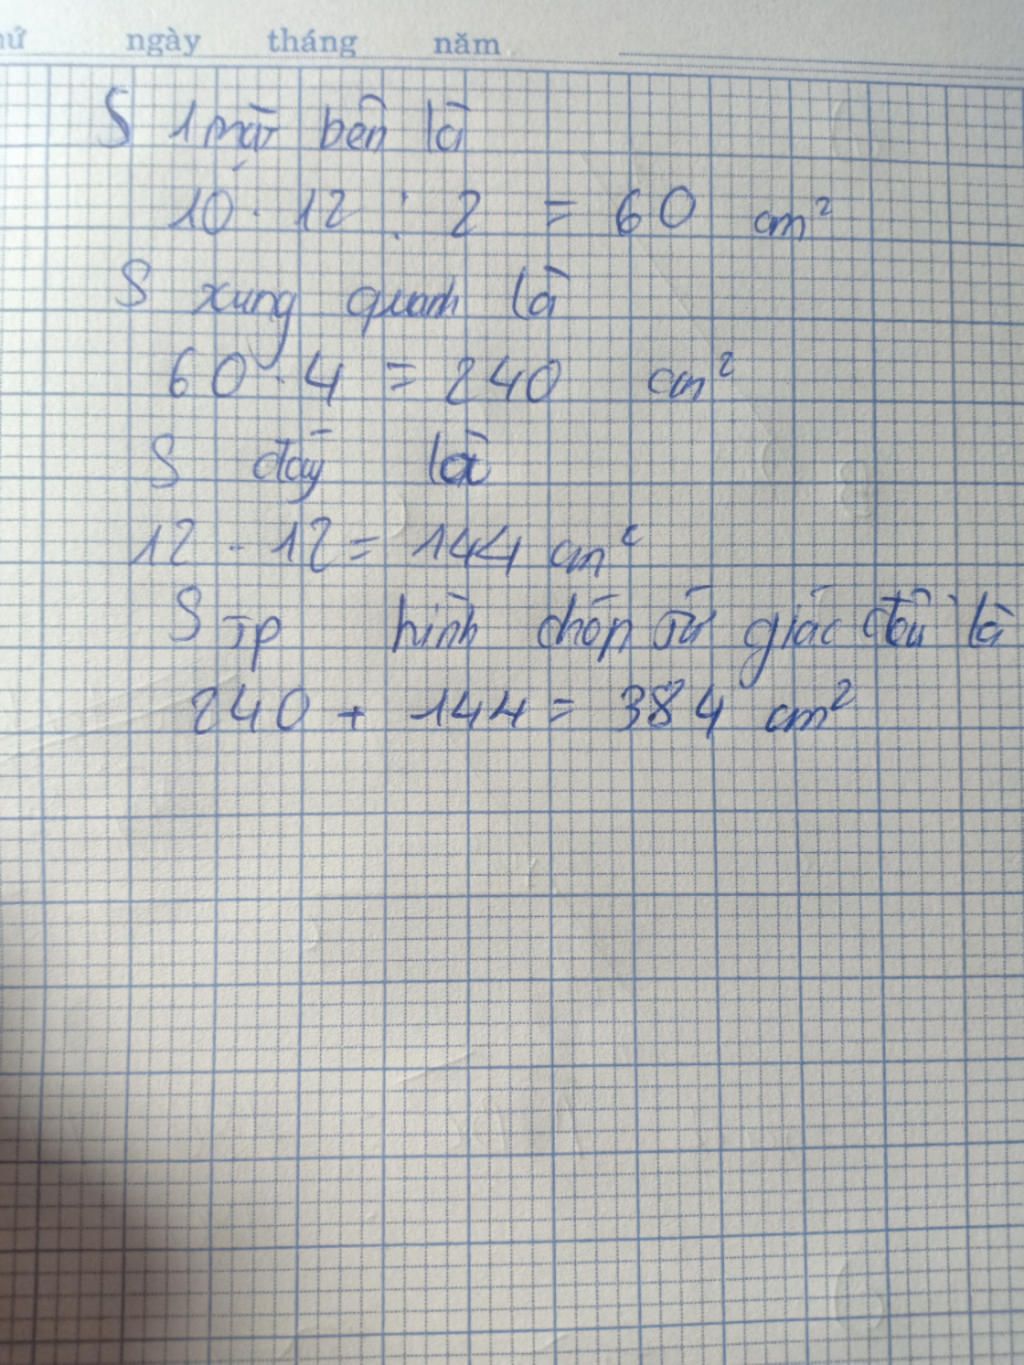 ngày tháng năm
S 1 mặt bên là
10 . 12 : 2 = 60 cm²
S xung quanh là
60 . 4 = 240 cm²
S đáy là
12 . 12 = 144 cm²
S TP hình chóp tứ giác đều là
240 + 144 = 384 cm²